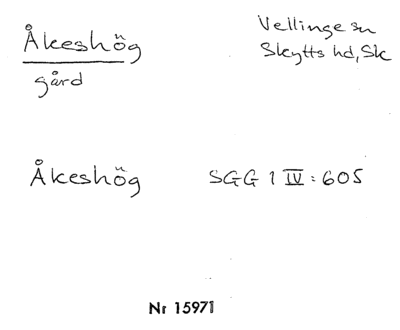 Åkeshög
gård
Vellinge sn
Skytts hd, Sk
Åkeshög SGG 1 IV: 605
Nr 15971